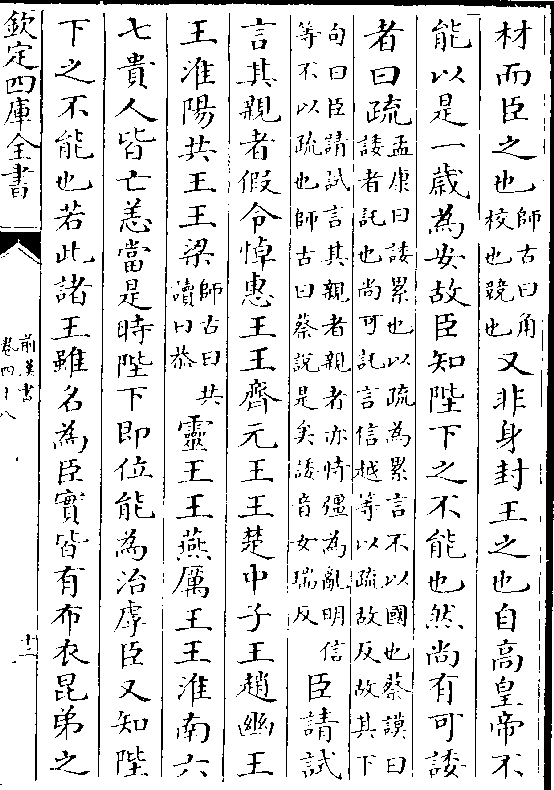 材而臣之也師古曰角校也競也又非身封王之也自高皇帝不
能以是一歳為安故臣知陛下之不能也然尚有可諉
者曰疏孟康曰諉累也以疏為累言不以國也蔡謨曰諉者託也尚可託言信越等以疏故反故其下
句曰臣請試言其親者親者亦恃彊為亂明信等不以疏也師古曰蔡說是矣諉音女瑞反臣請試
言其親者假令悼惠王王齊元王王楚中子王趙幽王
王淮陽共王王梁師古曰共讀曰恭靈王王燕厲王王淮南六
七貴人皆亡恙當是時陛下即位能為治虖臣又知陛
下之不能也若此諸王雖名為臣實皆有布衣昆弟之
欽定四庫全書
前漢書
卷四十八
十二